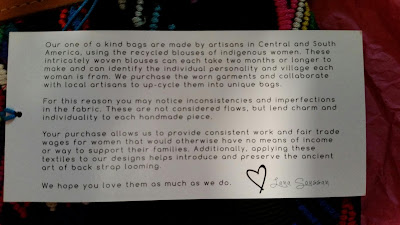 Our one of a kind bags are made by artisans in Central and South
America, using the recycled blouses of indigenous women. These
intricately woven blouses can each take two months or longer to
make and can identify the individual personality and village each
woman is from. We purchase the worn garments and collaborate
with local artisans to up-cycle them into unique bags.
For this reason you may notice inconsistencies and imperfections
in the fabric. These are not considered flaws, but lend charm and
individuality to each handmade piece.
Your purchase allows us to provide consistent work and fair trade
wages for women that would otherwise have no means of income
or way to support their families. Additionally, applying these
textiles to our designs helps introduce and preserve the ancient
art of back strap looming.
We hope you love them as much as we do.